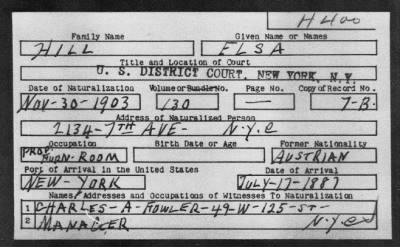 H400
Family Name Given Name or Names
HILL ELSA
Title and Location of Court
U. S. DISTRICT COURT, NEW YORK, N.Y.
Date of Naturalization Volume or Bundle No. Page No. Copy of Record No.
NOV-30-1903 130 — 7-B.
Address of Naturalized Person
2134-7TH AVE- N.Y.C
Occupation Birth Date or Age Former Nationality
PROP. ROOM AUSTRIAN
Port of Arrival in the United States Date of Arrival
NEW-YORK JULY-17-1887
Names, Addresses and Occupations of Witnesses To Naturalization
1 CHARLES-A-FOWLER-49-W-125-ST-
2 MANAGER N.Y.C